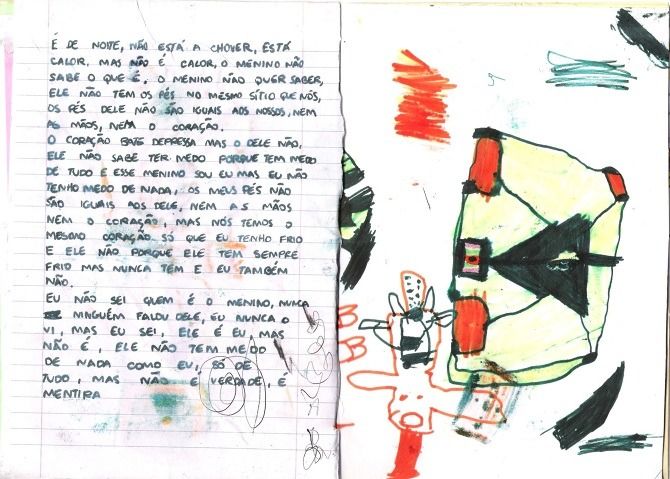 É DE NOITE, NÃO ESTÁ A CHOVER, ESTÁ
CALOR, MAS NÃO É CALOR, O MENINO NÃO
SABE O QUE É. O MENINO NÃO QUER SABER,
ELE NÃO TEM OS PÉS NO MESMO SÍTIO QUE NÓS,
OS PÉS DELE NÃO SÃO IGUAIS AOS NOSSOS, NEM
AS MÃOS, NEM O CORAÇÃO.
O CORAÇÃO BATE DEPRESSA MAS O DELE NÃO,
ELE NÃO SABE TER MEDO PORQUE TEM MEDO
DE TUDO E ESSE MENINO SOU EU MAS EU NÃO
TENHO MEDO DE NADA, OS MEUS PÉS NÃO
SÃO IGUAIS AOS DELE, NEM AS MÃOS
NEM O CORAÇÃO, MAS NÓS TEMOS O
MESMO CORAÇÃO SÓ QUE EU TENHO FRIO
E ELE NÃO PORQUE ELE TEM SEMPRE
FRIO MAS NUNCA TEM E EU TAMBÉM
NÃO.
EU NÃO SEI QUEM É O MENINO, NUNCA
NINGUÉM FALOU DELE, EU NUNCA O
VI, MAS EU SEI, ELE É EU, MAS
NÃO É, ELE NÃO TEM MEDO
DE NADA COMO EU, SÓ DE
TUDO, MAS NÃO É VERDADE, É
MENTIRA
B
B